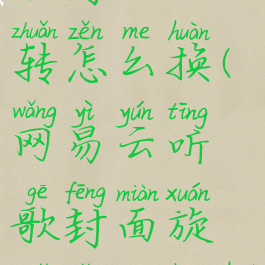 zhuǎn zěn me huàn
转怎么换(
wǎng yì yún tīng
网易云听
gē fēng miàn xuán
歌封面旋